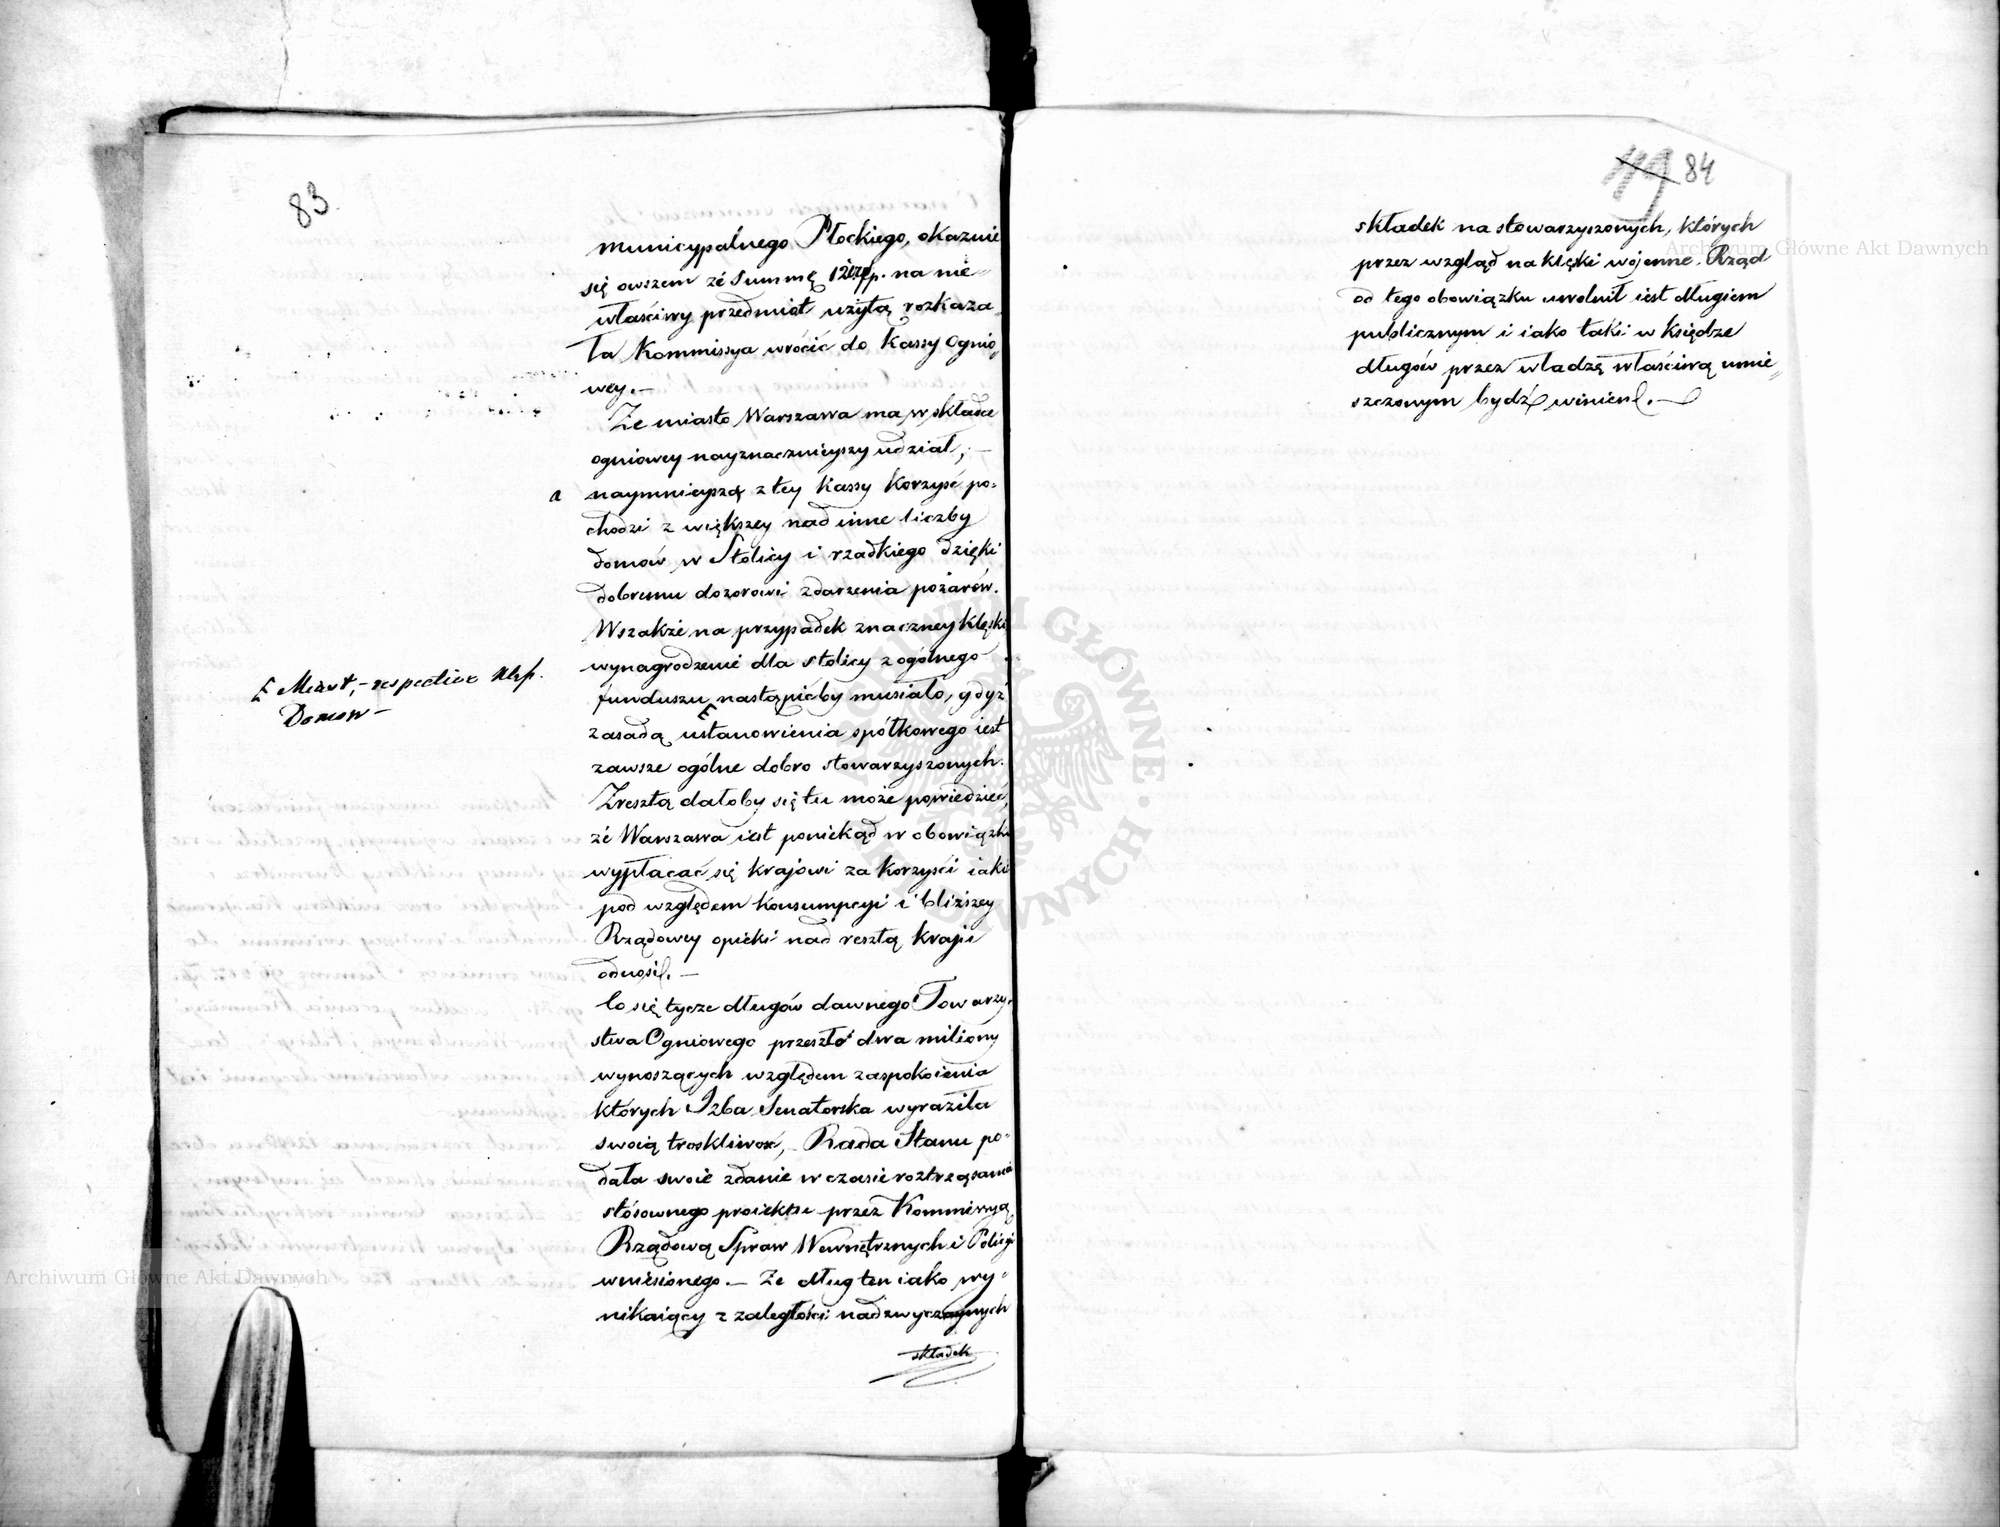 83
municypalnego Płockiego, okazuie
się owszem że Summę na nie=
właściwy przedmiot użytą rozkaza=
ła Kommissya wrócić do Kassy Ognio=
wey. —
Że miasto Warszawa ma w składce
ogniowey nayznacznieyszy udział, —
a naymnieyszą z tey Kassy Korzyść po=
chodzi z większey nad inne liczby
domów w Stolicy i rzadkiego dzięki
dobremu dozorowi zdarzenia pożarów.
Wszakże na przypadek znaczney klęski
wynagrodzenie dla stolicy z ogólnego
funduszu nastąpićby musiało, gdyż
zasadą ustanowienia spółkowego iest
zawsze ogólne dobro stowarzyszonych.
Zresztą dałoby się tu może powiedzieć,
że Warszawa iest poniekąd w obowiązku
wypłacać się krajowi za korzyści iakie
pod względem konsumpcyi i bliższey
Rządowey opieki nad resztą kraju
odnosi. —
Co się tycze długów dawnego Towarzy=
stwa Ogniowego przeszło dwa miliony
wynoszących względem zaspokoienia
których Izba Senatorska wyraziła
swoią troskliwość, Rada Stanu po=
dała swoie zdanie w czasie roztrząsania
stósownego proiektu przez Kommissyą
Rządową Spraw Wewnętrznych i Policyi
wniesionego. — Że dług ten iako wy=
nikaiący z zaległości nadzwyczaynych
składek
respective
Domow —
119 84
składek na stowarzyszonych, których
przez wzgląd na klęski wojenne Rząd
od tego obowiązku uwolnił iest długiem
publicznym i iako taki w księdze
długów przez władzę właściwą umie=
szczonym bydź winien. —
Archiwum Główne Akt Dawnych
Archiwum Główne Akt Dawnych